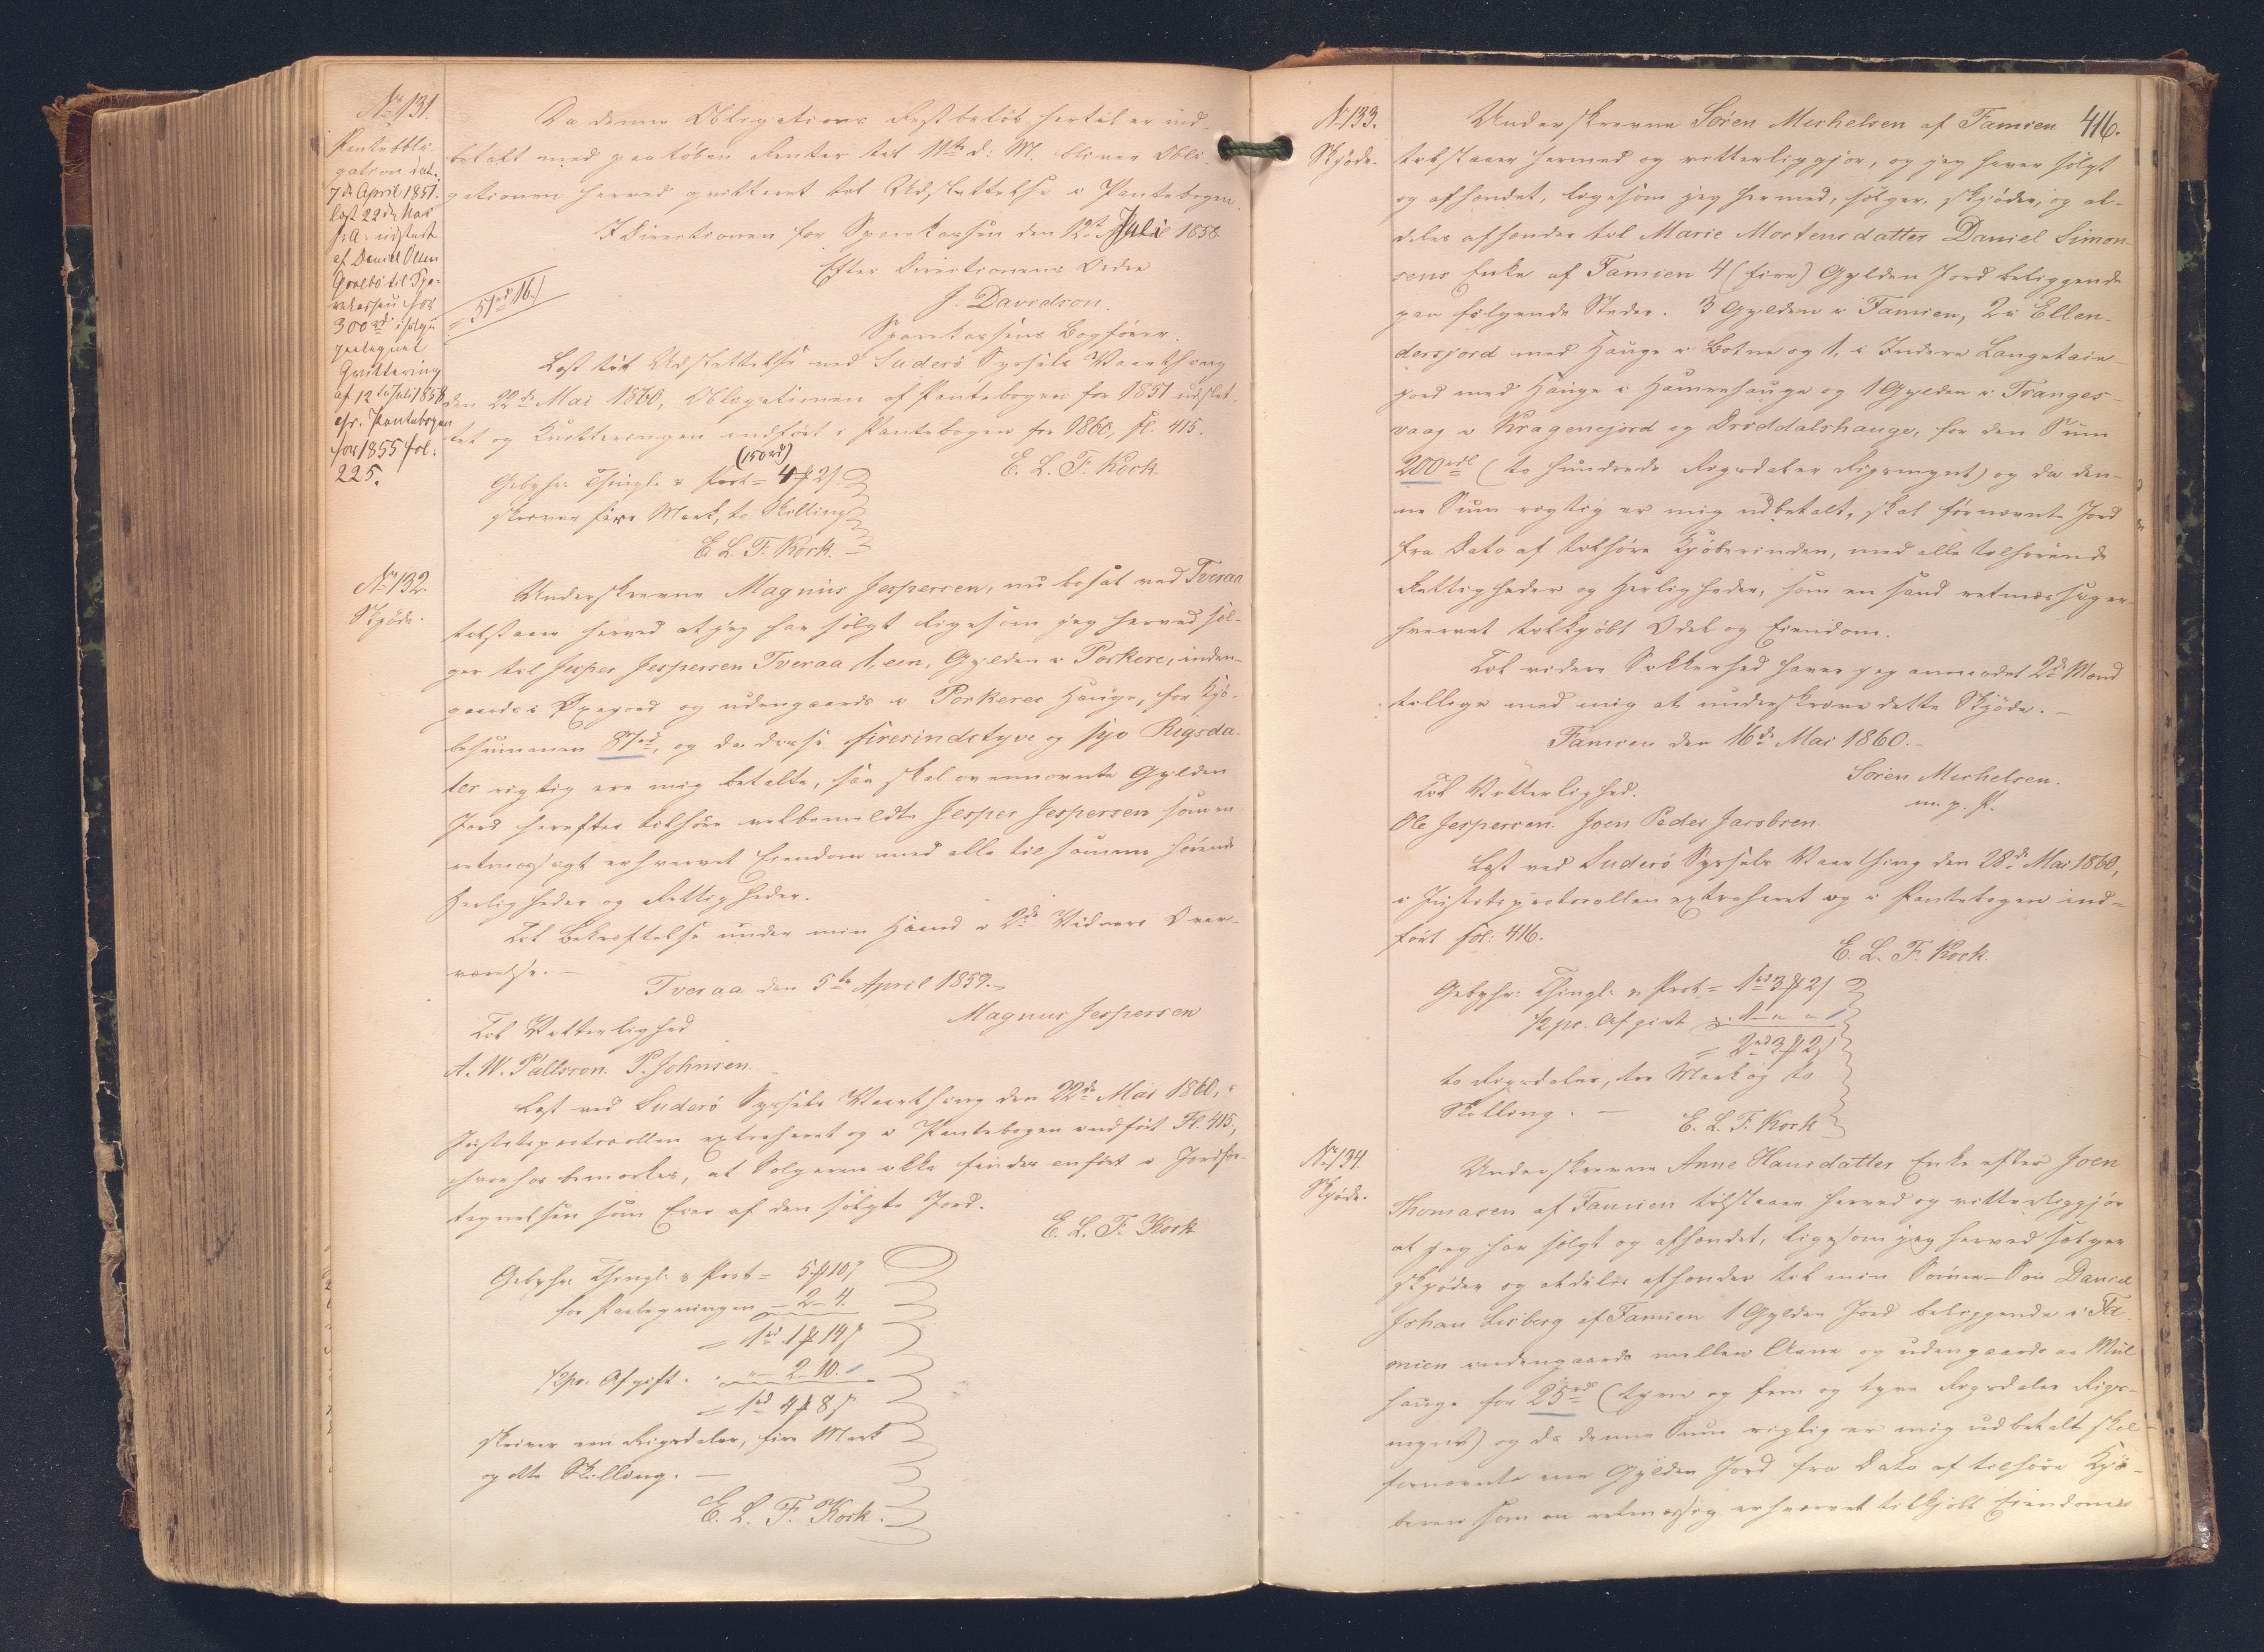 No 131.
Pantobli-
gation dat.
7de April 1851.
læst 22de Mai
s: A: udstedt
af Daniel Olsen
Qvalbö til Spa-
rekassen for
300 rd ifølge
paategnet
Qvittering
af 12te Juli 1858
cfr. Pantebogen
for 1855 fol.
225.
Da denne Obligations Restbeløb hertil er ind-
betalt med paaløbne Renter til 11te d: M. bliver Obli-
gationen herved qvitteret til Udslettelse i Pantebogen.
I Directionen for Sparekassen den 12te Juli 1858
Efter Directionens Ordre
= 57rd 16 s
J. Davidson.
Sparekassens Bogfører.
Læst til Udslettelse ved Suderö Syssels Vaarthing
den 22de Mai 1860, Obligationen af Pantebogen for 1851 udslet-
tet og Qvitteringen indført i Pantebogen for 1860, fl. 415.
(150rd)
E. L. T. Kock.
Gebyhr: Thingl: & Prot = 4 ₻ 2 s
skriver fire Mark, to Skilling
E. L. T. Kock.
No 132.
Skjøde.
Underskrevne Magnus Jespersen, nu bosat ved Tveraa
tilstaaer herved at jeg har solgt ligesom jeg herved sæl-
ger til Jesper Jespersen Tveraa 1, een, Gylden i Porkere, inden-
gaards i Øregjerd og udengaards i Porkeres Hauge, for Kjø-
besummen 87rd, og da disse firesindstyve og syv Rigsda-
ler rigtig ere mig betalte, saa skal ovennævnte Gylden
Jord herefter tilhøre velbemeldte Jesper Jespersen som en
retmæssigt erhvervet Eiendom med alle til samme hørende
Herligheder og Rettigheder.
Til Bekræftelse under min Haand i 2de Vidners Over-
værelse. —
Tveraa den 5te April 1859.
Til Vitterlighed
Magnus Jespersen
A. W. Pállsson. P. Johnsen.
Læst ved Suderö Syssels Vaarthing den 22de Mai 1860, i
Justitsprotocollen extraheret og i Pantebogen indført Fl. 415,
hvorhos bemærkes, at Sælgeren ikke findes anført i Jordfor-
tegnelsen som Eier af den solgte Jord.
E. L. T. Kock
Gebyhr: Thingl: & Prot = 5 ₻ 10 s
for Paategningen — 2 – 4.
= 1rd 1 ₻ 14 s
1/2 pc. Afgift . " – 2 – 10.
= 1rd 4 ₻ 8 s
skriver een Rigsdaler, fire Mark
og otte Skilling. —
E. L. T. Kock.
416.
No 133.
Skjøde.
Underskrevne Sören Michelsen af Famien
tilstaaer hermed og vitterliggjør, og jeg haver solgt
og afhændet, ligesom jeg hermed, sælger, skjøder, og al-
deles afhænder til Marie Mortensdatter Daniel Simon-
sens Enke af Famien 4 (fire) Gylden Jord beliggende
paa følgende Steder. 3 Gylden i Famien, 2 i Ellen-
dersjord med Hauge i Botne og 1, i Indere Langetaie-
jord med Hauge i Hamrehauge og 1 Gylden i Tranges-
vaag i Kragenejord og Driddalshauge, for den Sum
200rdl (to hundrede Rigsdaler Rigsmynt) og da den-
ne Sum rigtig er mig udbetalt, skal førnævnte Jord
fra Dato af tilhøre Kjøberinden, med alle tilhørende
Rettigheder og Herligheder, som en sand retmæssig er-
hvervet tilkjøbt Odel og Eiendom.
Til videre Sikkerhed haver jeg anmodet 2de Mænd
tillige med mig at underskrive dette Skjøde. —
Famien den 16de Mai 1860. —
Sören Michelsen.
Til Vitterlighed.
m. p. P.
Ole Jespersen. Joen Peder Jacobsen.
Læst ved Suderö Syssels Vaarthing den 28de Mai 1860,
i Justitsprotocollen extraheret og i Pantebogen ind-
ført fol: 416.
E. L. T. Kock.
Gebyhr: Thingl: & Prot = 1rd 3 ₻ 2 s
1/2 pc. Afgift = 1 – " – "
= 2rd 3 ₻ 2 s
to Rigsdaler, tre Mark og to
Skilling. —
E. L. T. Kock
No 134.
Skjøde.
Underskrevne Anne Hansdatter Enke efter Joen
Thomasen af Famien tilstaaer herved og vitterliggjør
at jeg har solgt og afhændet, ligesom jeg herved sælger
skjøder og aldeles afhænder til min Sønne-Søn Daniel
Johan Lisberg af Famien 1 Gylden Jord beliggende i Fa-
mien indengaards mellem Aaene og udengaards i Mül
hauge for 25rd (tyve og fem og tyve Rigsdaler Rigs-
mynt) og da denne Sum rigtig er mig udbetalt skal
fornævnte ene Gylden Jord fra Dato af tilhøre Kjø-
beren som en retmæssig erhvervet tilkjøbt Eiendom